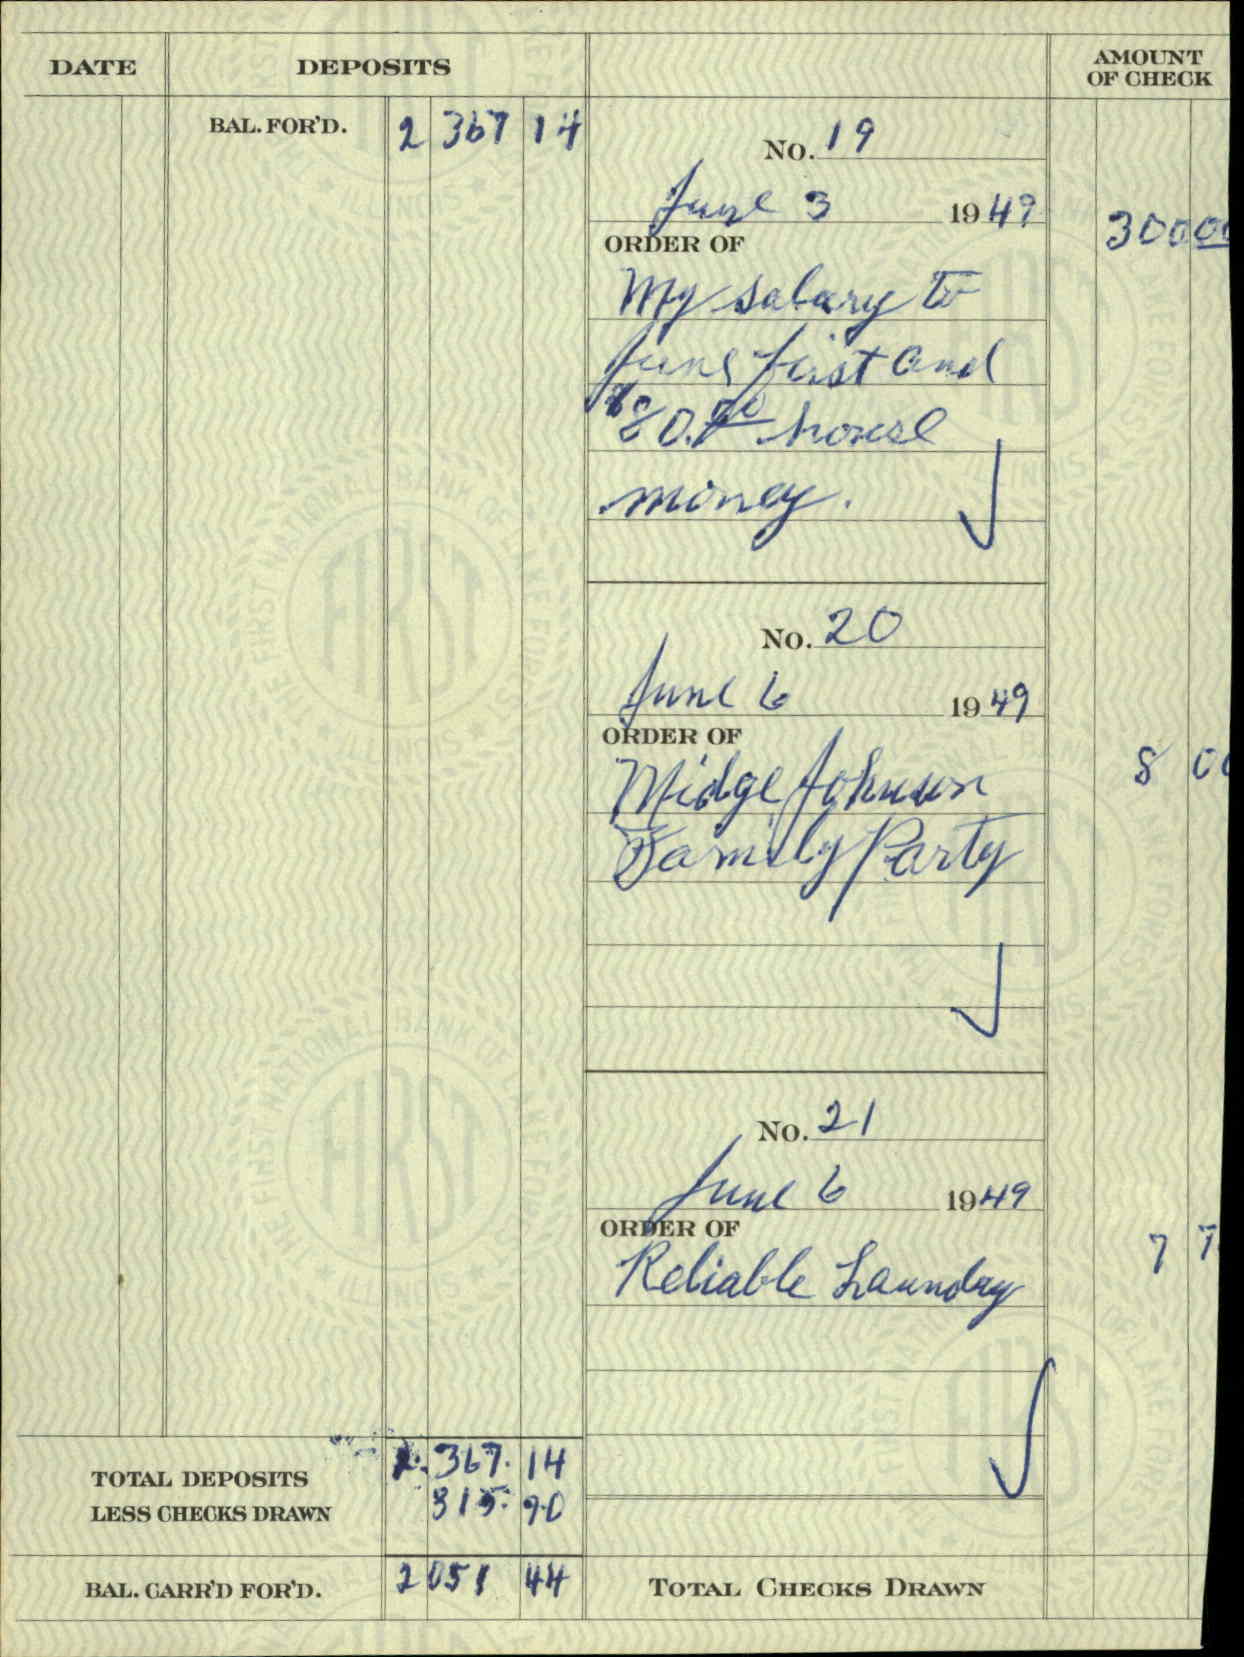 DATE DEPOSITS AMOUNT
OF CHECK
BAL. FOR'D. 2 367 14
No. 19
June 3 1949 300 00
ORDER OF
My salary to
June first and
$80.00 house
money.
No. 20
June 6 1949
ORDER OF
Midge Johnson 8 00
Family Party
No. 21
June 6 1949
ORDER OF
Reliable Laundry 7 7
TOTAL DEPOSITS 2. 367. 14
LESS CHECKS DRAWN 315. 70
BAL. CARR'D FOR'D. 2 051 44 TOTAL CHECKS DRAWN